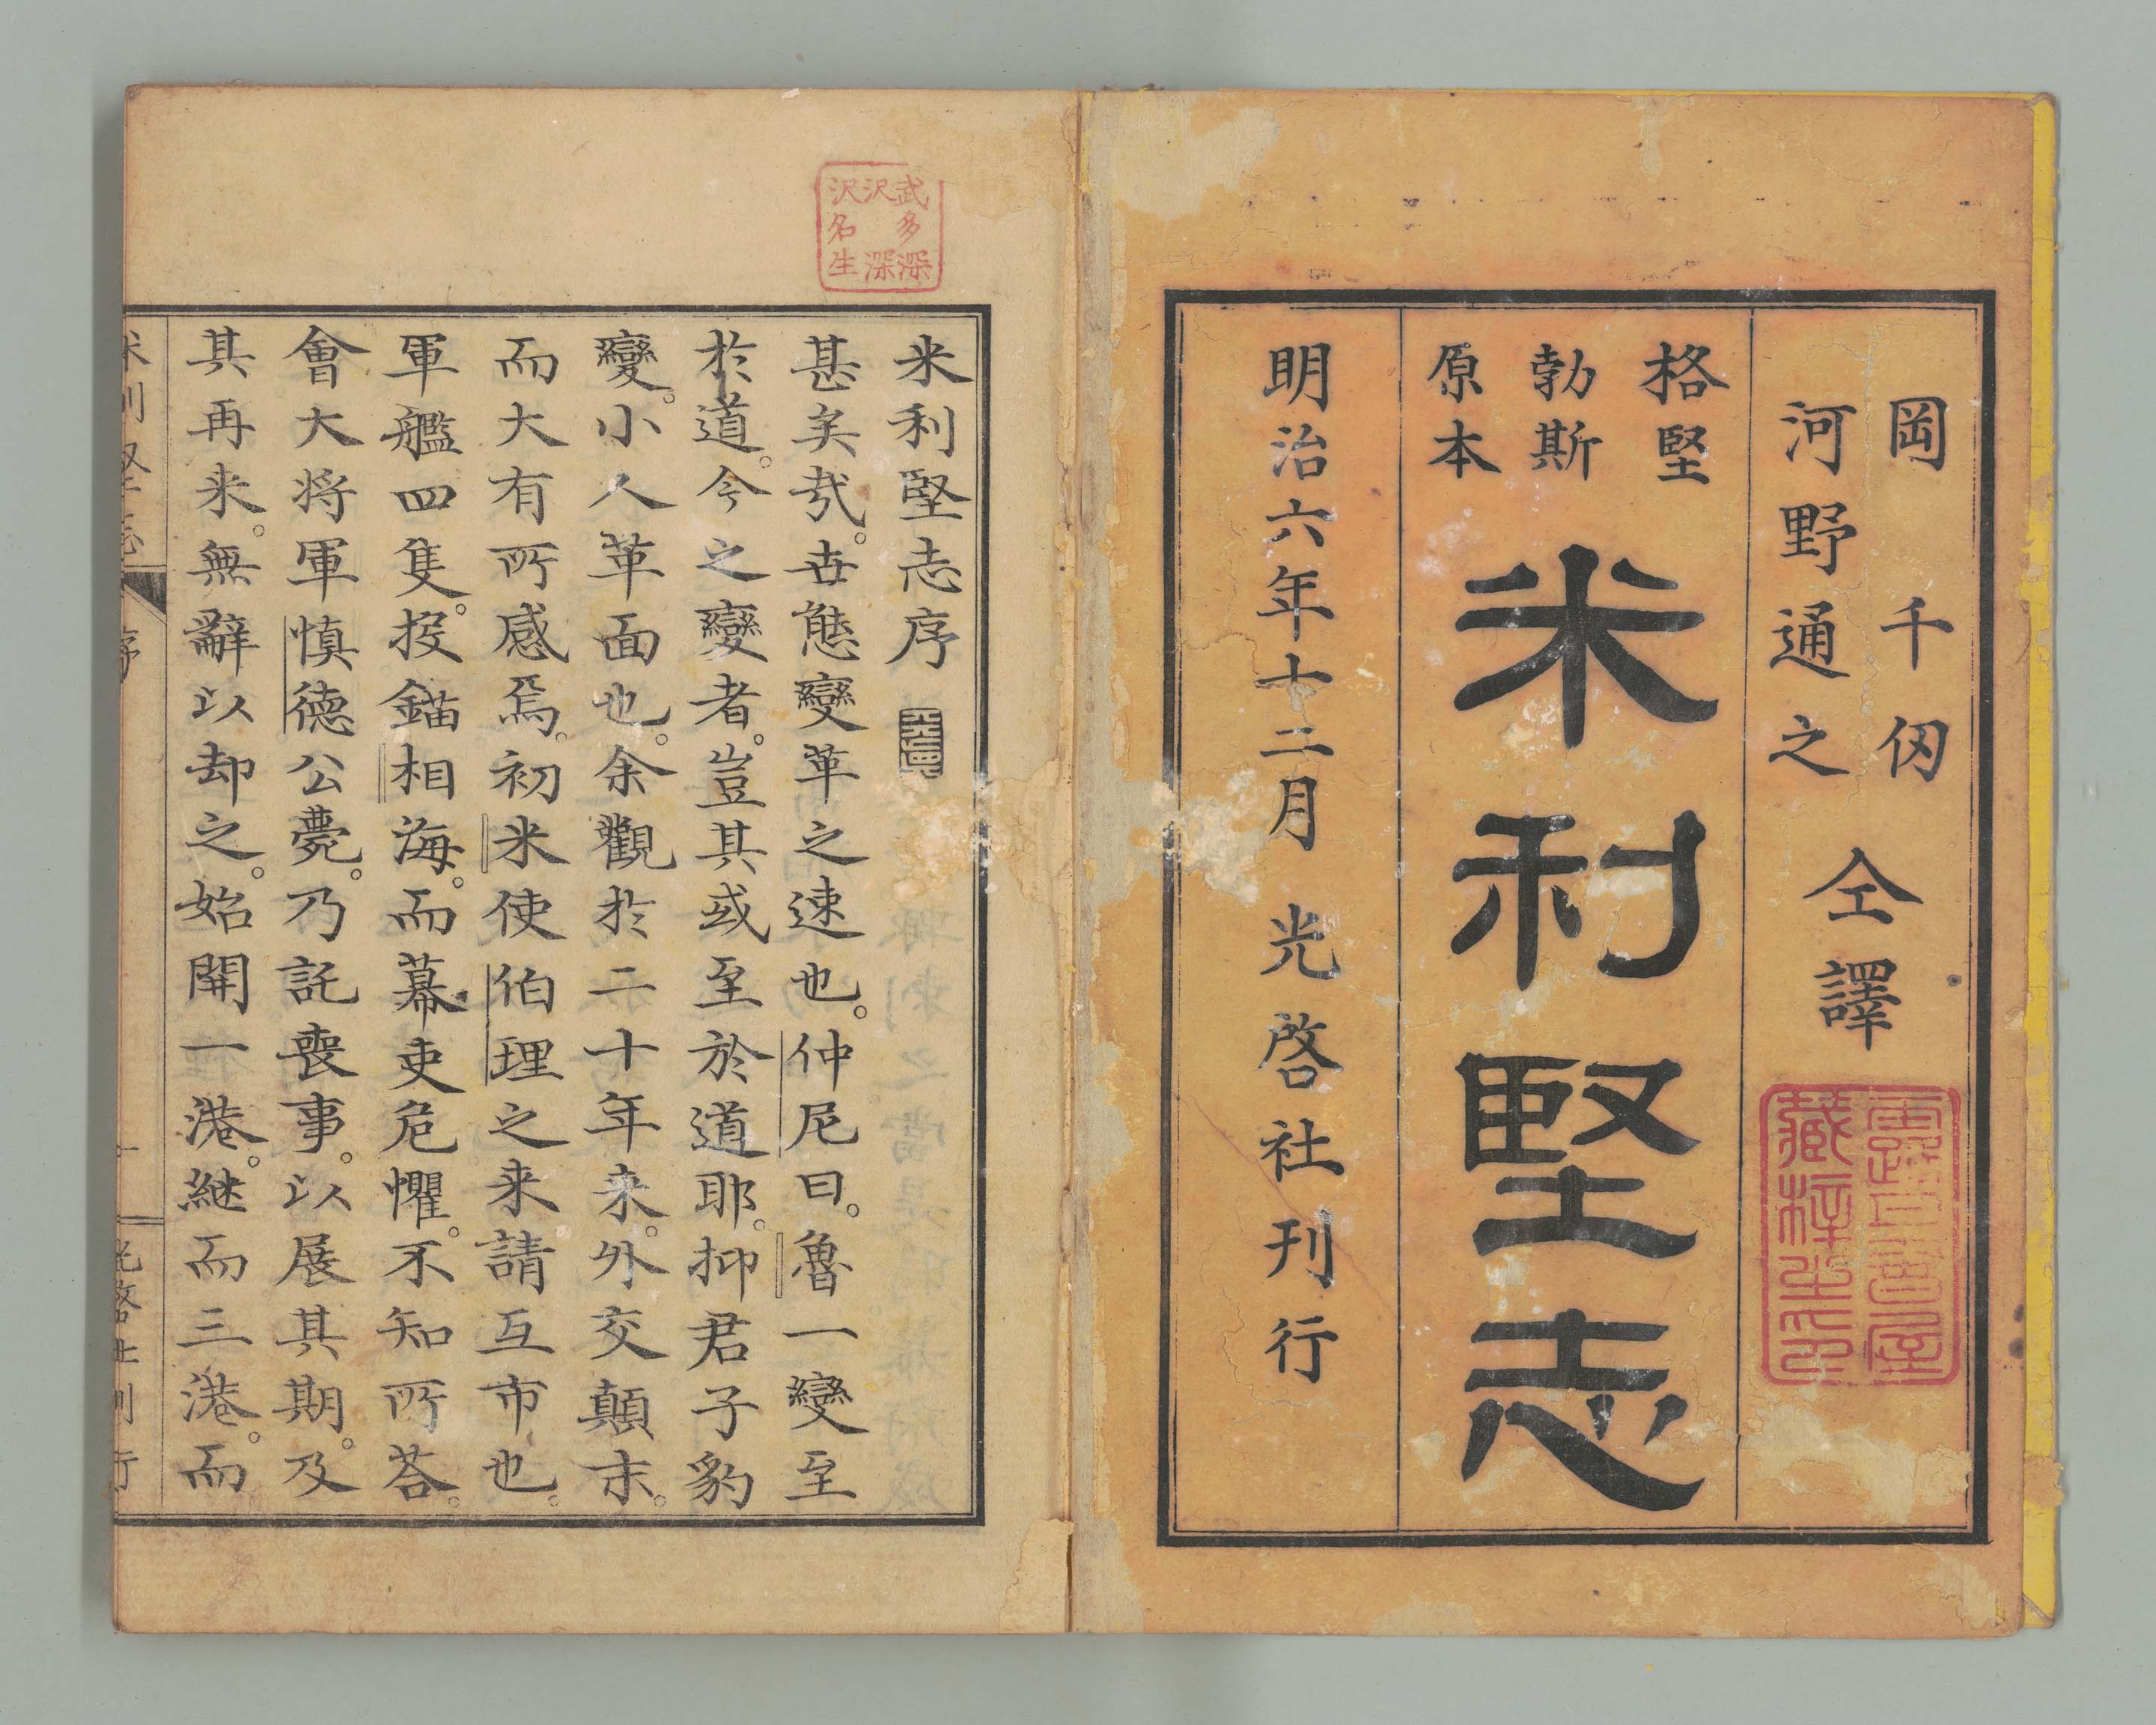 岡千仞
河野通之
仝譯
格堅
勃斯
原本
米利堅志
明治六年十二月 光啓社刊行
米利堅志序
甚矣哉。世態變革之速也。仲尼曰。魯一變至
於道。今之變者。豈其或至於道耶。抑君子豹
變。小人革面也。余觀於二十年来。外交顛末。
而大有所感焉。初米使伯理之来請互市也。
軍艦四隻。投錨相海。而幕吏危懼。不知所荅。
會大将軍慎德公薨。乃託喪事。以展其期。及
其再来。無辭以却之。始開一港。継而三港。而
米利堅志
序
一
光啓社刊行